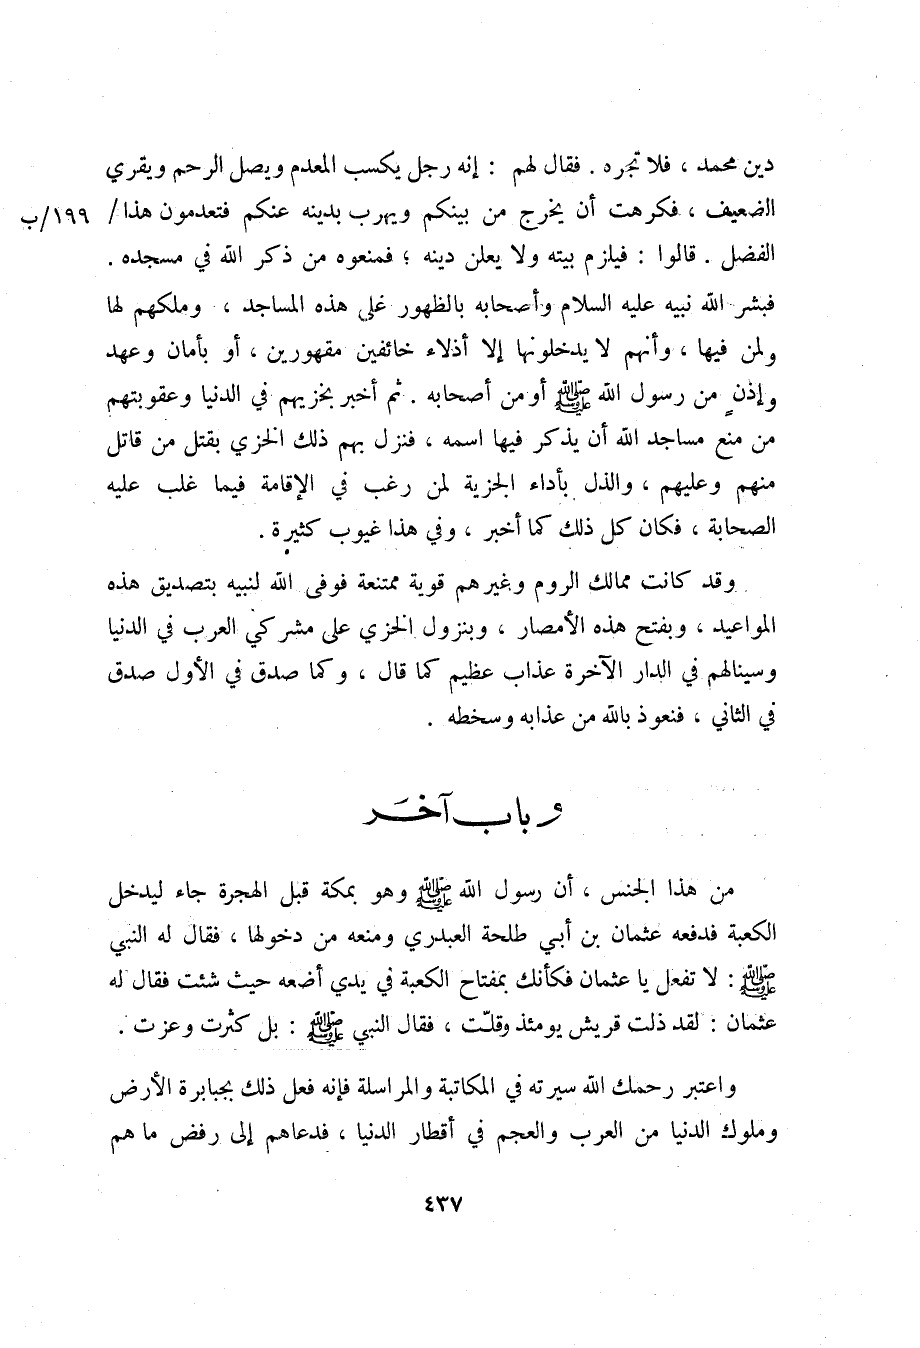 دين محمد ، فلا تجره . فقال لهم : إنه رجل يكسب المعدم ويصل الرحم ويقري
الضعيف ، فكرهت أن يخرج من بينكم ويهرب بدينه عنكم فتعدمون هذا / ١٩٩/ب
الفضل . قالوا : فيلزم بيته ولا يعلن دينه ؛ فمنعوه من ذكر الله في مسجده .
فبشر الله نبيه عليه السلام وأصحابه بالظهور على هذه المساجد ، وملكهم لها
ولمن فيها ، وأنهم لا يدخلونها إلا أذلاء خائفين مقهورين ، أو بأمان وعهد
وإذنٍ من رسول الله ﷺ أو من أصحابه . ثم أخبر بخزيهم في الدنيا وعقوبتهم
من منع مساجد الله أن يذكر فيها اسمه ، فنزل بهم ذلك الخزي بقتل من قاتل
منهم وعليهم ، والذل بأداء الجزية لمن رغب في الإقامة فيما غلب عليه
الصحابة ، فكان كل ذلك كما أخبر ، وفي هذا غيوب كثيرة .
وقد كانت ممالك الروم وغيرهم قوية ممتنعة فوفى الله لنبيه بتصديق هذه
المواعيد ، وبفتح هذه الأمصار ، وبنزول الخزي على مشركي العرب في الدنيا
وسينالهم في الدار الآخرة عذاب عظيم كما قال ، وكما صدق في الأول صدق
في الثاني ، فنعوذ بالله من عذابه وسخطه .
وباب آخَر
من هذا الجنس ، أن رسول الله ﷺ وهو بمكة قبل الهجرة جاء ليدخل
الكعبة فدفعه عثمان بن أبي طلحة العبدري ومنعه من دخولها ، فقال له النبي
ﷺ : لا تفعل يا عثمان فكأنك بمفتاح الكعبة في يدي أضعه حيث شئت فقال له
عثمان : لقد ذلت قريش يومئذ وقلّت ، فقال النبي ﷺ : بل كثرت وعزت .
واعتبر رحمك الله سيرته في المكاتبة والمراسلة فإنه فعل ذلك بجبابرة الأرض
وملوك الدنيا من العرب والعجم في أقطار الدنيا ، فدعاهم إلى رفض ما هم
٤٣٧